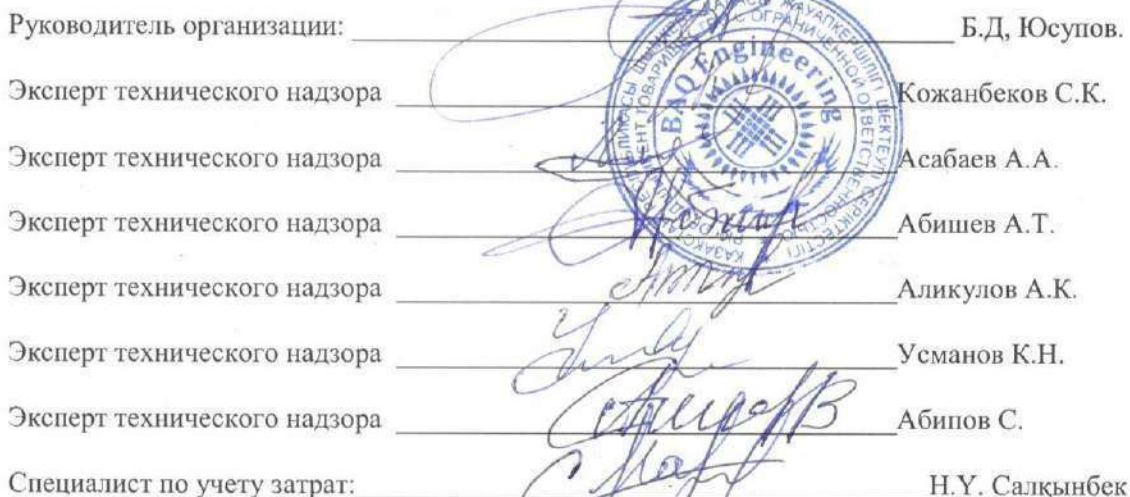 Руководитель организации: Б.Д, Юсупов.
Эксперт технического надзора Кожанбеков С.К.
Эксперт технического надзора Асабаев А.А.
BAQ Engineering
Эксперт технического надзора Абишев А.Т.
Эксперт технического надзора Аликулов А.К.
Эксперт технического надзора Усманов К.Н.
Эксперт технического надзора Абипов С.
Специалист по учету затрат: Н.Ү. Салқынбек